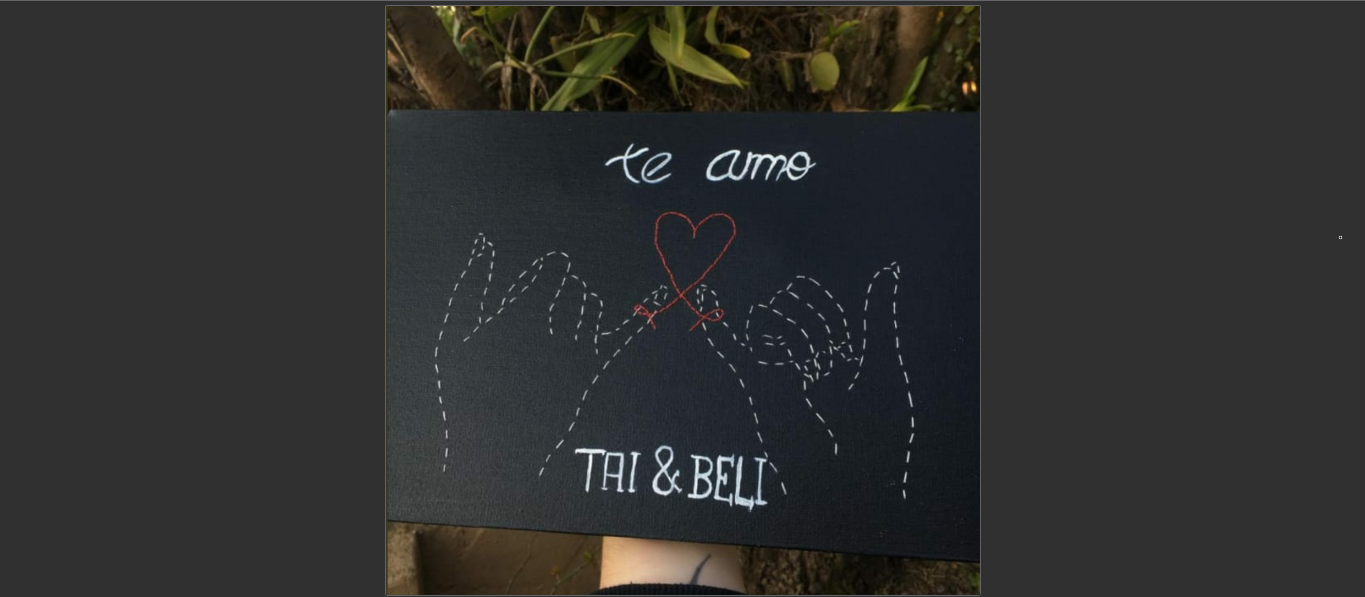 te amo
TAI & BELI